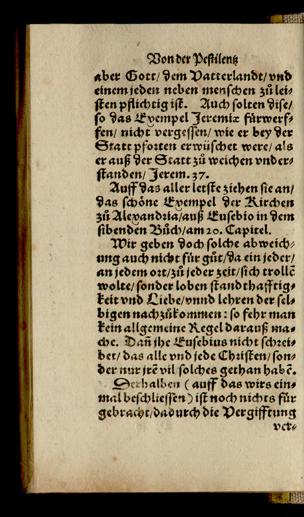 Von der Pestilentz
aber Gott/dem Vatterlandt/vnd
einem jeden neben menschen zů lei-
sten pflichtig ist. Auch solten dise/
so das Exempel Jeremiæ fürwerf-
fen/nicht vergessen/wie er bey der
Statt pforten erwüschet were/als
er auß der Statt zů weichen vnder-
standen/Jerem. 37.
Auff das aller letste ziehen sie an/
das schöne Exempel der Kirchen
zů Alexandria/auß Eusebio in dem
sibenden Bůch/am 20. Capitel.
Wir geben doch solche abweich-
ung auch nicht für gůt/da ein jeder/
an jedem ort/zů jeder zeit/sich trollē
wolte/sonder loben standthafftig-
keit vnd Liebe/vnnd lehren der sel-
bigen nachzůkommen: so fehr man
kein allgemeine Regel darauß ma-
che. Dañ jhe Eusebius nicht schrei-
bet/das alle vnd jede Christen/son-
der nur jrē vil solches gethan habē.
Derhalben (auff das wirs ein-
mal beschliessen) ist noch nichts für
gebracht/dadurch die Vergifftung
ver-